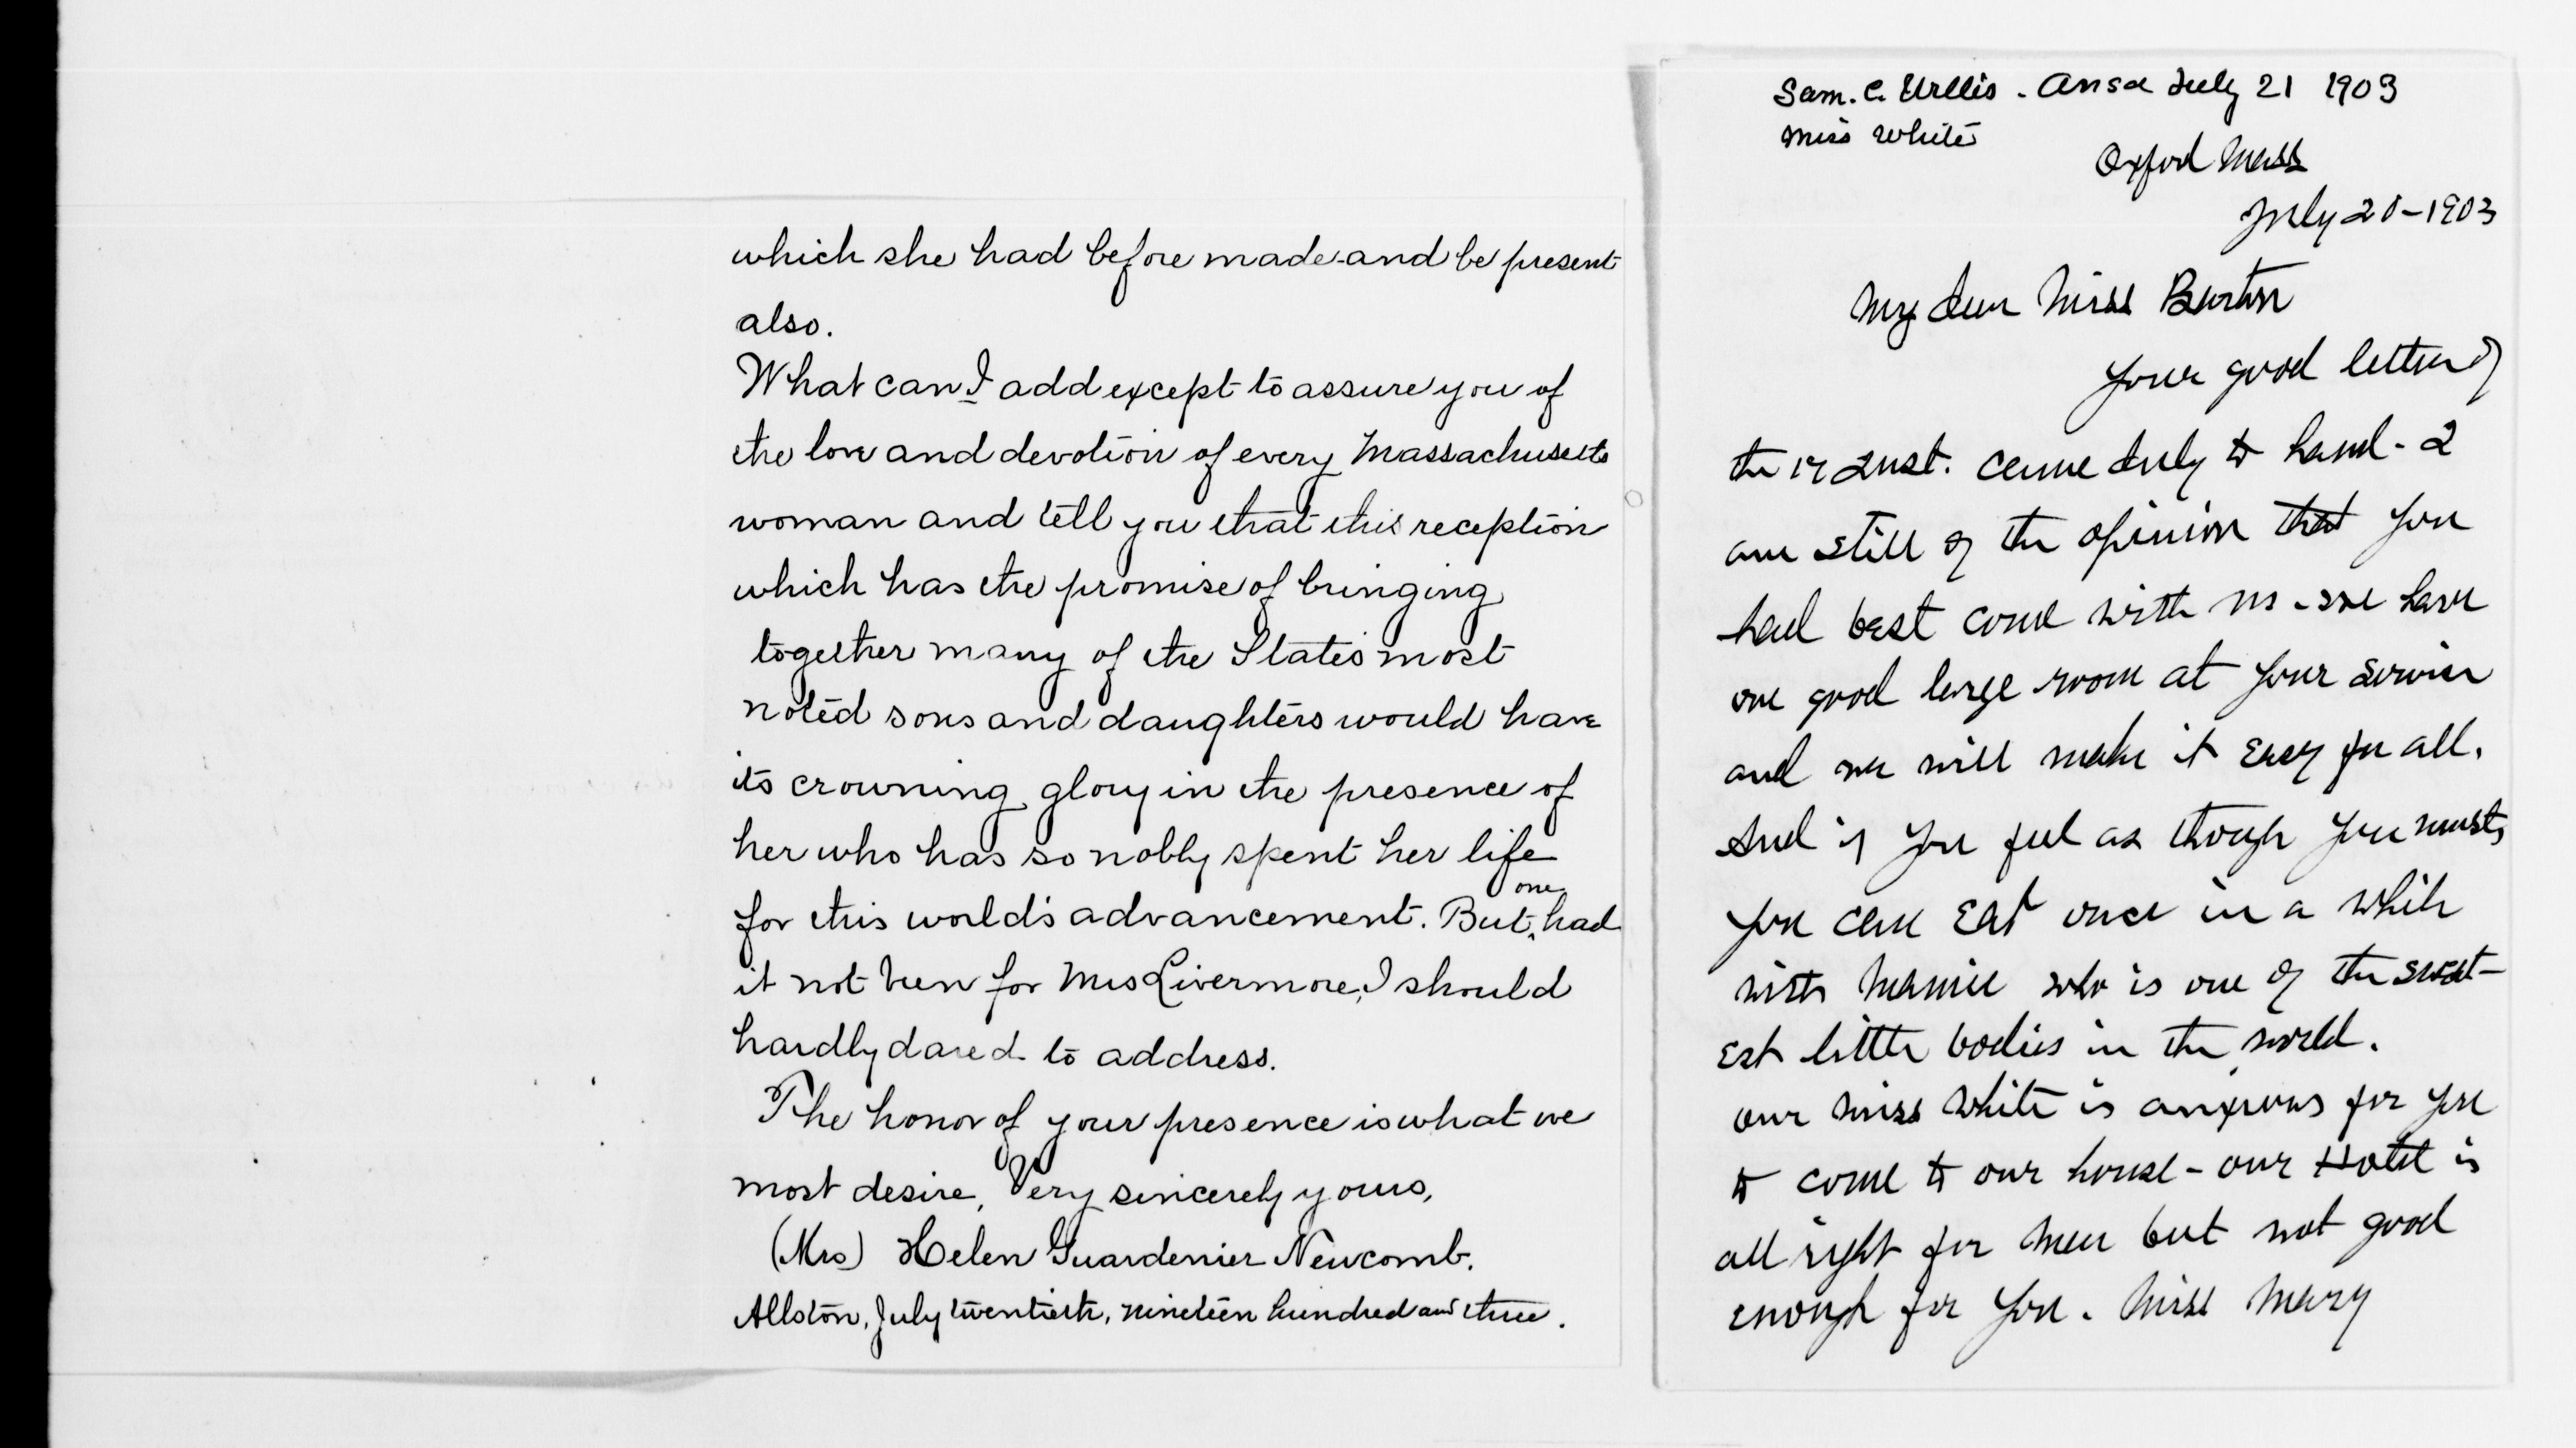 which she had before made and be present
also.
What can I add except to assure you of
the love and devotion of every Massachusetts
woman and tell you that this reception
which has the promise of bringing
together many of the States most
noted sons and daughters would have
its crowning glory in the presence of
her who has so nobly spent her life
for this world's advancement. But, one had
it not been for Mrs Livermore, I should
hardly dared to address.
The honor of your presence is what we
most desire, Very sincerely yours,
(Mrs) Helen Guardenier Newcomb.
Allston, July twentieth, nineteen hundred and three.
Sam. C. July 21 1903
Miss White
Oxford Mass
July 20-1903
My dear Miss Barton
Your good letter of
the inst. came duly to hand - I
am still of the opinion that you
had best come with us - we have
one good large room at your service
and we will make it easy for all.
And if you feel as though you must,
you can eat once in a while
with Mamie who is one of the sweet-
est little bodies in the world.
our Miss White is anxious for you
to come to our house - our Hotel is
all right for men but not good
enough for you. Miss Mary